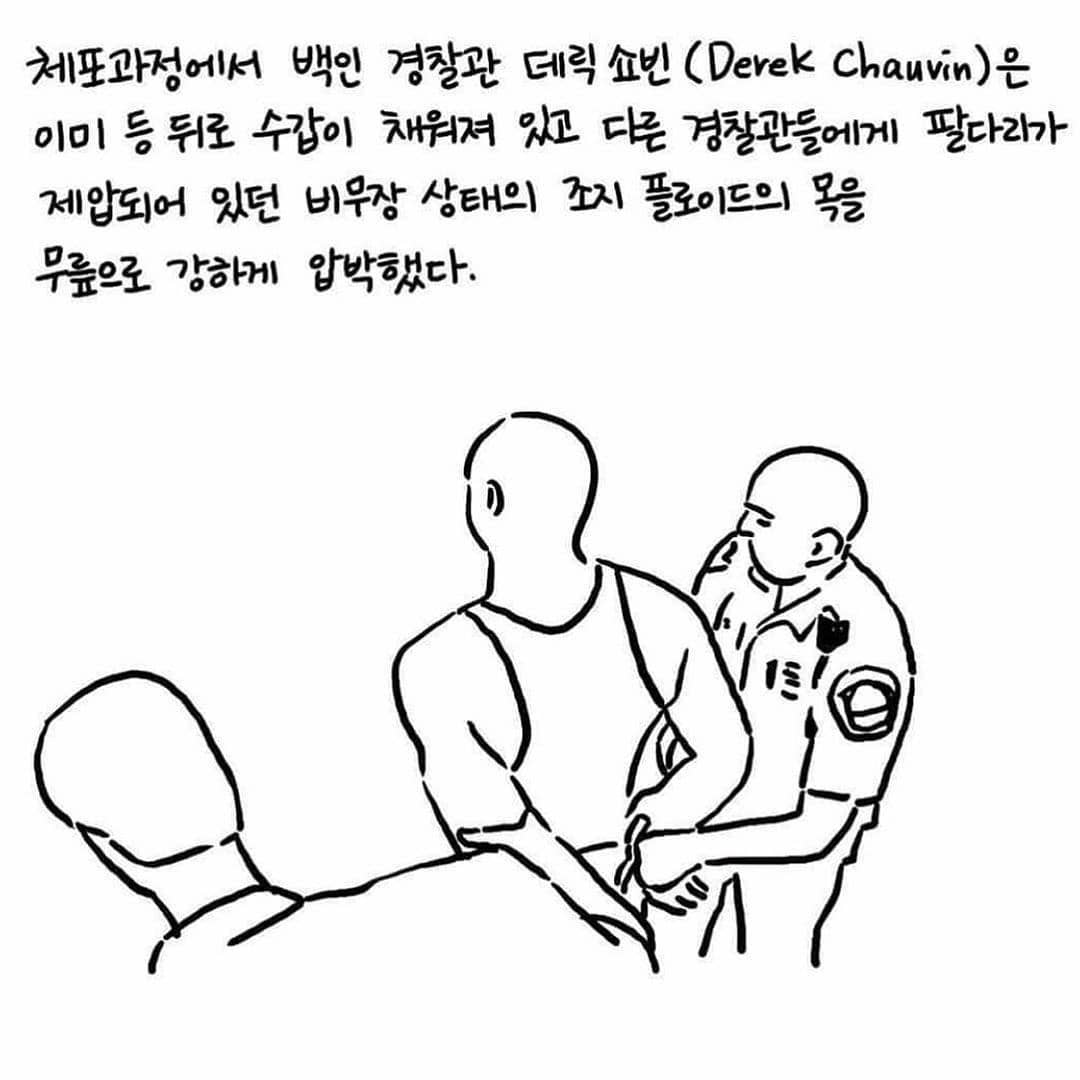 체포과정에서 백인 경찰관 데릭 쇼빈 (Derek Chauvin)은
이미 등 뒤로 수갑이 채워져 있고 다른 경찰관들에게 팔다리가
제압되어 있던 비무장 상태의 조지 플로이드의 목을
무릎으로 강하게 압박했다.